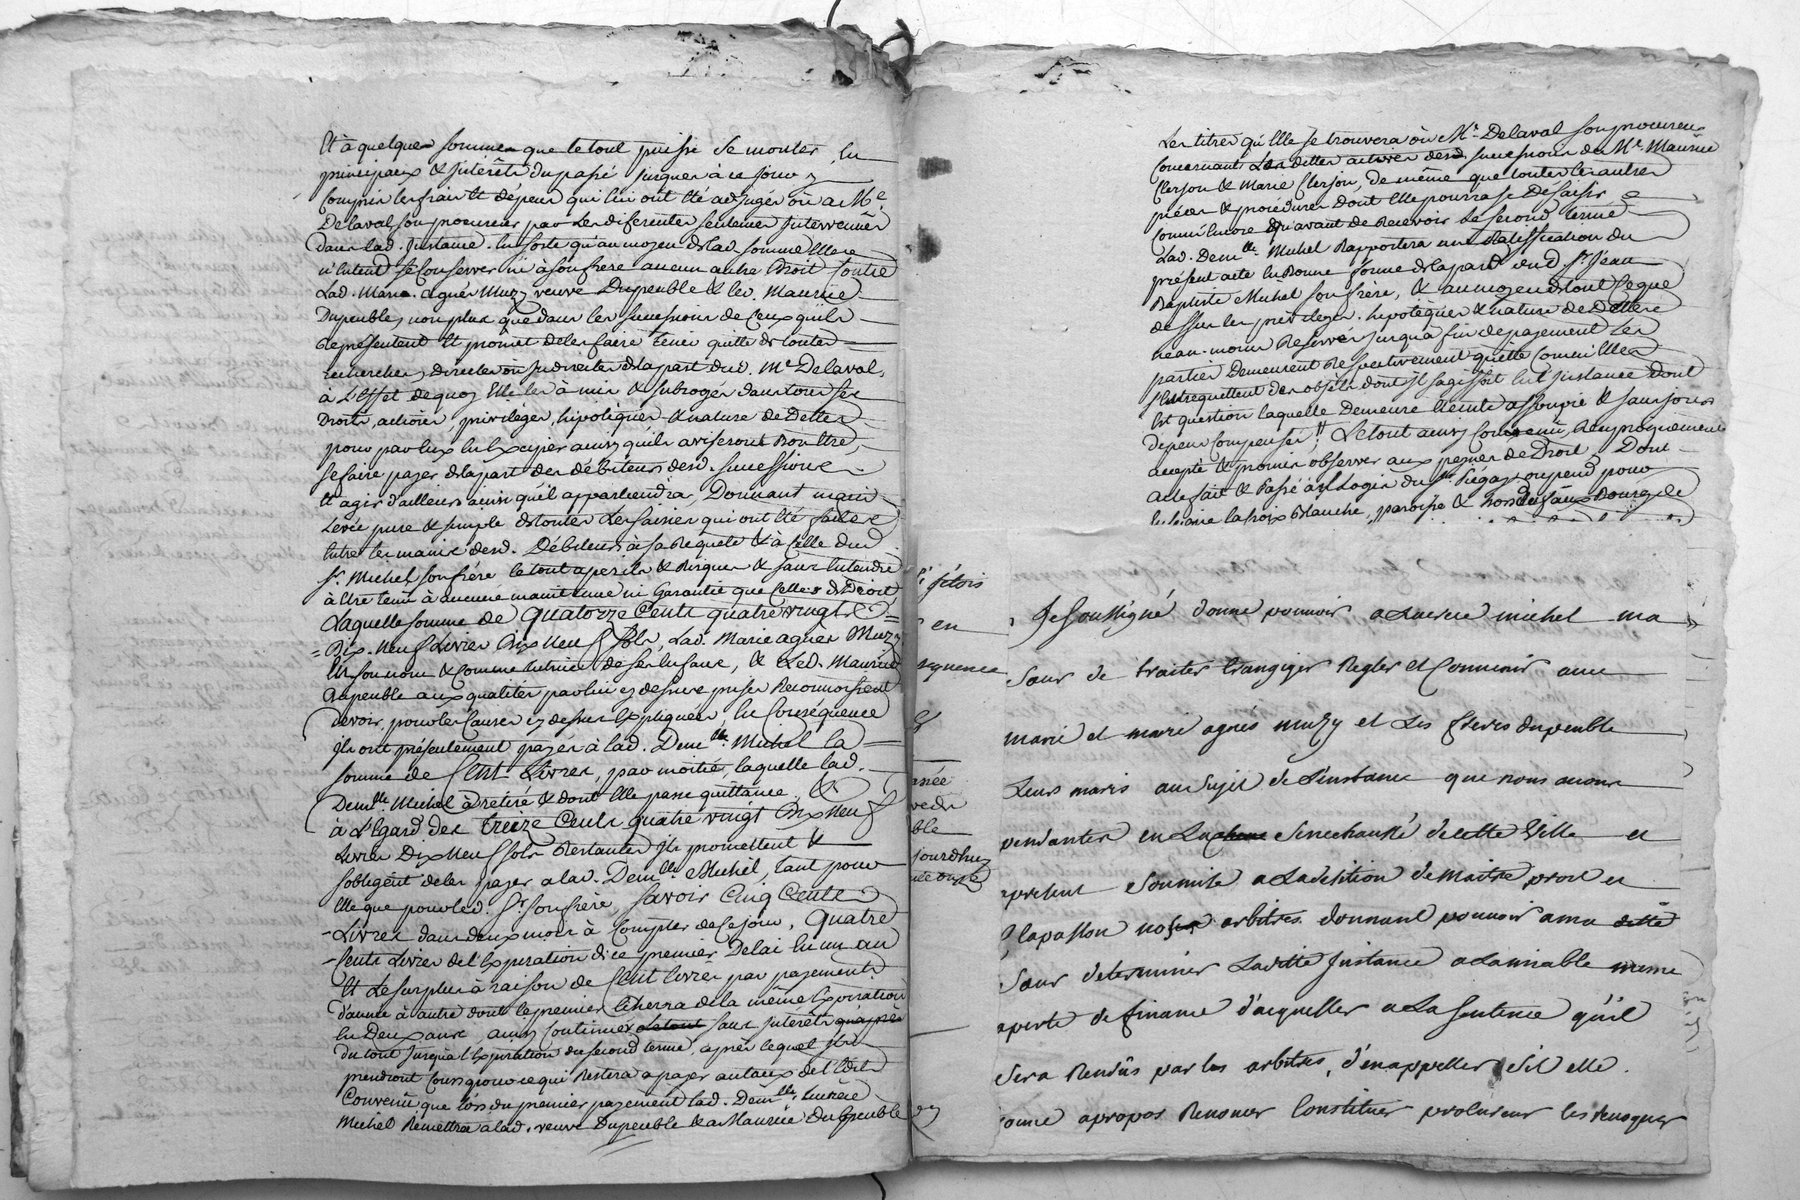 Et à quelque somme que le tout puisse se monter en
principaux & Intérêts du passé jusques à ce jour y
Compris les frais Et dépens qui lui ont été adjugés ou a Me.
Delaval son procureur par les diferentes sentences Intervenües
dans lad. Instance. En sorte qu'au moyen de lad. somme Elle
n'entend se Conserver ni à son frere aucun autre Droit Contre
Lad. Marie agnés Muzy veuve Dupeuble & led. Maurice
Dupeuble, non plus que dans les successions de Ceux qu'ils
représentent Et promet de les faire tenir quitte de toutes
recherches, directes ou Indirectes de la part dud. Me Delaval,
à L'effet de quoy Elle les à mis & subrogés dans tous ses
Droits, actions, privileges, hipotèques & nature de Dettes
pour par Eux En Exciper ainsy qu'ils aviseront Bon Etre,
se faire payer de la part des débiteurs desd. successions
Et agir d'ailleurs ainsi qu'il appartiendra, Donnant main
Levée pure & simple de toutes Les saisies qui ont été faites
Entre les mains desd. Débiteurs à sa Requete & à Celle dud.
Sr. Michel son frére le tout a perils & Risques & sans Entendre
à Etre tenüe à aucune maintenüe ni Garantie que Celles de Droit
Laquelle somme de Quatorze Cents quatre vingt
Dix-Neuf Livres Dix Neuf Sols, Lad. Marie agnes Muzy
En son nom & comme tutrice de ses Enfans, & Led. Maurice
Dupeuble aux qualités par lui cy dessus prises Reconnoissent
devoir pour les Causes cy dessus Expliquées, En Conséquence
ils ont présentement payés à lad. Demlle. Michel la
somme de Cent Livres, par moitié, laquelle lad.
Demlle. Michel à retiré & dont Elle passe quittance &
à L'Egard des treize Cents quatre vingt Dix Neuf
Livres Dix Neuf sols Restantes ils promettent &
s'obligent de les payer a lad. Demlle. Michel, tant pour
Elle que pour led. Sr. son frére, savoir Cinq Cents
Livres dans deux mois à Compter de Ce jour, Quatre
Cents Livres de l'Expiration dice premier Delai En un an
Et Le surplus à raison de Cent livres par payement
d'année à autre dont le premier Echerra de la même Expiration
En Deux ans, ainsy Continuer le tout sans Intérêts
du tout Jusqu'a l'Expiration du second terme, après lequel ils
prendront Cours pour ce qui Restera a payer au taux de l'Edit
Convenü que lors du premier payement lad. Demlle. Lucrèce
Michel Remettra a lad. veuve Dupeuble & a Maurice Dupeuble
Les titres qu'Elle se trouvera ou Me. Delaval son procureur
Concernant Les dettes actives desd. successions de Me. Maurice
Clerjon & Marie Clerjon, de même que toutes les autres
piéces & procédures dont Elle pourra se Dessaisir
Comm'Encore qu'avant de Recevoir Le second terme
Lad. Demlle. Michel Rapportera une Ratification du
présent acte En Bonne forme de la part dud. Sr. Jean
Baptiste Michel son frère, & au moyen de tout Ce que
dessus les privileges, hipotèques & nature de Dettes
neanmoins Reservés jusqu'à fin de payement Les
parties Demeurent Respectivement quittes
des objets dont il s'agissoit En l'Instance dont
Est question laquelle Demeure Eteinte assoupie & sans jours
depens Compensés, Le tout ainsy Convenu, Reciproquement
accepté & promis observer aux peines de Droit, Dont
acte fait & Passé au Logis du Sr.
la Croix Blanche, paroisse &
étois
en
séquence
née
ble
jourdhuy
Je soussigné donne pouvoir a Lucrece michel ma
sœur de traiter transiger Regler et Convenir avec
marie et marie agnés muzy et Les freres dupeuble
Leurs maris au sujet de L'instance que nous avons
pendantes en La senechaussée de cette Ville et
apresent soumise a La desition de Maitre prost et
lapasson nos arbitres donnant pouvoir a ma ditte
sœur determiner Laditte Instance a Lamiable meme
aperte de finance d'acquesser a La Sentence qu'il
sera Rendüs par les arbitres, d'en appeller sil elle
apropos Renoncer Constituer procureur les revoquer